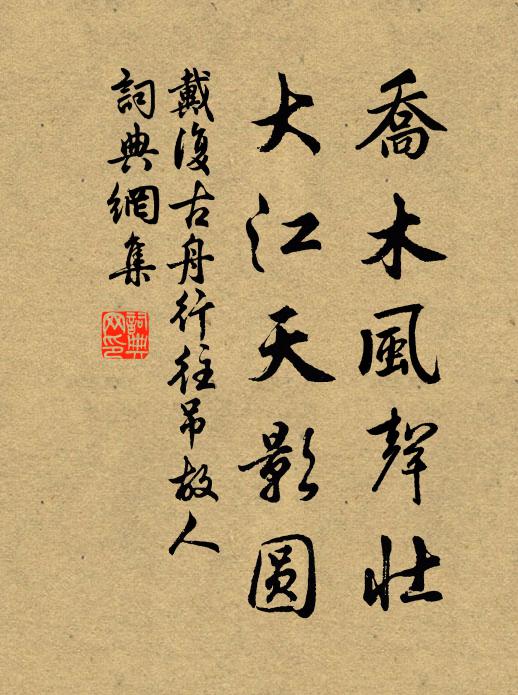 喬木風聲壯
大江天影圓
戴復古舟行往吊故人
詞典網集
詞典網印